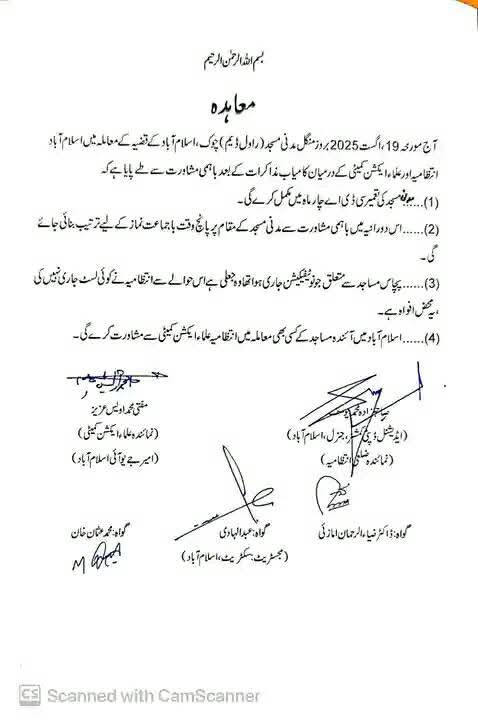 بسم اللہ الرحمٰن الرحیم
معاہدہ
آج مورخہ 19،اگست 2025 بروز منگل مدنی مسجد (راول ڈیم) چوک، اسلام آباد کے قضیہ کے معاملہ میں اسلام آباد
انتظامیہ اور علماء ایکشن کمیٹی کے درمیان کامیاب مذاکرات کے بعد باہمی مشاورت سے طے پایا ہے کہ
(1)...... مسجد کی تعمیر سی ڈی اے چار ماہ میں مکمل کرے گی۔
(2)...... اس دورانیہ میں باہمی مشاورت سے مدنی مسجد کے مقام پر پانچ وقت باجماعت نماز کے لیے ترتیب بنائی جائے
گی۔
(3)...... پچاس مساجد سے متعلق جو نوٹیفکیشن جاری ہوا تھا وہ جعلی ہے اس حوالے سے انتظامیہ نے کوئی لسٹ جاری نہیں کی
،یہ محض افواہ ہے۔
(4)...... اسلام آباد میں آئندہ مساجد کے کسی بھی معاملہ میں انتظامیہ علماء ایکشن کمیٹی سے مشاورت کرے گی۔
صاحبزادہ محمد یوسف
(ایڈیشنل ڈپٹی کمشنر، جنرل، اسلام آباد)
(نمائندہ ضلعی انتظامیہ)
مفتی محمد اویس عزیز
(نمائندہ علماء ایکشن کمیٹی)
(امیر جے یو آئی اسلام آباد)
گواہ: ڈاکٹر ضیاء الرحمان امازئی
گواہ: عبدالہادی
(مجسٹریٹ: سکٹریٹ، اسلام آباد)
گواہ: محمد عثمان خان
CS Scanned with CamScanner